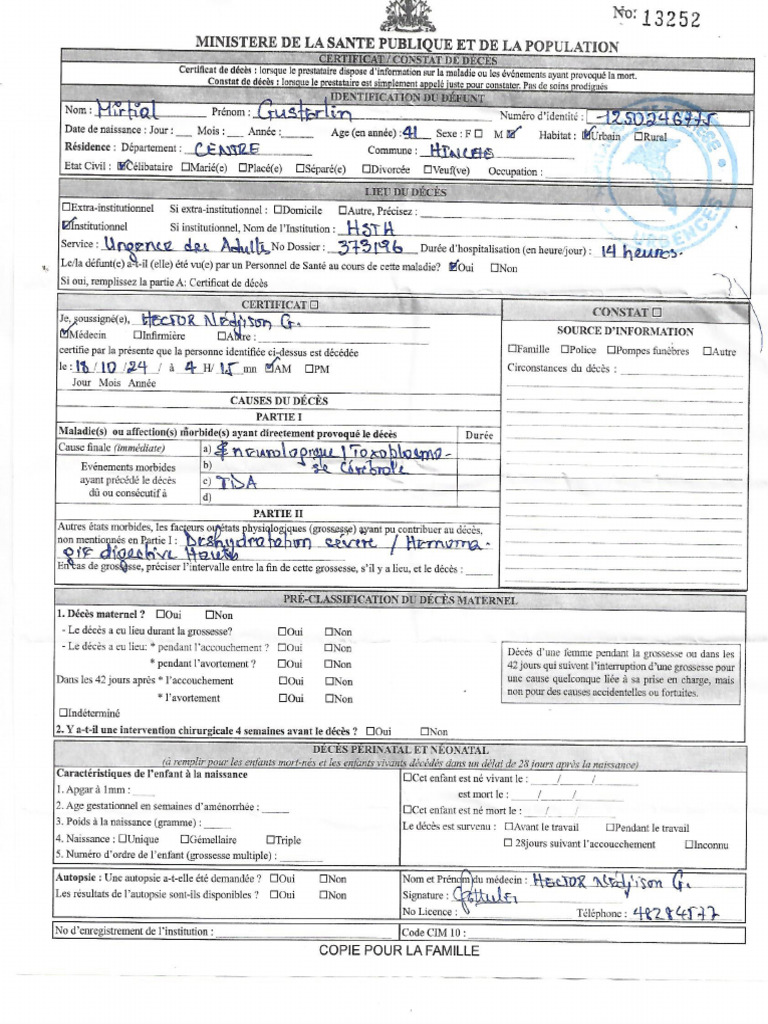 No: 13252
MINISTERE DE LA SANTE PUBLIQUE ET DE LA POPULATION
CERTIFICAT / CONSTAT DE DÉCÈS
Certificat de décès : lorsque le prestataire dispose d'information sur la maladie ou les événements ayant provoqué la mort.
Constat de décès : lorsque le prestataire est simplement appelé juste pour constater. Pas de soins prodigués
IDENTIFICATION DU DÉFUNT
Nom : Mirtial Prénom : Gusterlin Numéro d'identité : 1250246775
Date de naissance : Jour : Mois : Année : Age (en année) : 41 Sexe : F ☐ M ☑ Habitat : ☑Urbain ☐Rural
Résidence : Département : CENTRE Commune : HINCHE
Etat Civil : ☑Célibataire ☐Marié(e) ☐Placé(e) ☐Séparé(e) ☐Divorcée ☐Veuf(ve) Occupation :
LIEU DU DÉCÈS
☐Extra-institutionnel Si extra-institutionnel : ☐Domicile ☐Autre, Précisez :
☑Institutionnel Si institutionnel, Nom de l'Institution : HSTH
Service : Urgence des Adults No Dossier : 373196 Durée d'hospitalisation (en heure/jour) : 14 heures.
Le/la défunt(e) a-t-il (elle) été vu(e) par un Personnel de Santé au cours de cette maladie? ☑Oui ☐Non
Si oui, remplissez la partie A: Certificat de décès
URGENCES
CERTIFICAT ☐
Je, soussigné(e), HECTOR Nedjison G.
☑Médecin ☐Infirmière ☐Autre :
certifie par la présente que la personne identifiée ci-dessus est décédée
le : 18/10/24 / à 4 H/ 15 mn ☑AM ☐PM
Jour Mois Année
CAUSES DU DÉCÈS
PARTIE I
Maladie(s) ou affection(s) morbide(s) ayant directement provoqué le décès Durée
Cause finale (immédiate) a) neurologique / Toxoplasmo-
Evénements morbides b) se Cérébrale
ayant précédé le décès c) TDA
dû ou consécutif à d)
PARTIE II
Autres états morbides, les facteurs ou états physiologiques (grossesse) ayant pu contribuer au décès,
non mentionnés en Partie I : Deshydratation sévère / Hemorra-
gie digestive Haute
En cas de grossesse, préciser l'intervalle entre la fin de cette grossesse, s'il y a lieu, et le décès :
CONSTAT ☐
SOURCE D'INFORMATION
☐Famille ☐Police ☐Pompes funèbres ☐Autre
Circonstances du décès :
PRÉ-CLASSIFICATION DU DÉCÈS MATERNEL
1. Décès maternel ? ☐Oui ☐Non
- Le décès a eu lieu durant la grossesse? ☐Oui ☐Non
- Le décès a eu lieu: * pendant l'accouchement ? ☐Oui ☐Non
* pendant l'avortement ? ☐Oui ☐Non
Dans les 42 jours après * l'accouchement ☐Oui ☐Non
* l'avortement ☐Oui ☐Non
☐Indéterminé
2. Y a-t-il une intervention chirurgicale 4 semaines avant le décès ? ☐Oui ☐Non
Décès d'une femme pendant la grossesse ou dans les
42 jours qui suivent l'interruption d'une grossesse pour
une cause quelconque liée à sa prise en charge, mais
non pour des causes accidentelles ou fortuites.
DÉCÈS PÉRINATAL ET NÉONATAL
(à remplir pour les enfants mort-nés et les enfants vivants décédés dans un délai de 28 jours après la naissance)
Caractéristiques de l'enfant à la naissance
1. Apgar à 1mm :
2. Age gestationnel en semaines d'aménorrhée :
3. Poids à la naissance (gramme) :
4. Naissance : ☐Unique ☐Gémellaire ☐Triple
5. Numéro d'ordre de l'enfant (grossesse multiple) :
☐Cet enfant est né vivant le : / /
est mort le : / /
☐Cet enfant est né mort le : / /
Le décès est survenu : ☐Avant le travail ☐Pendant le travail
☐ 28jours suivant l'accouchement ☐Inconnu
Autopsie : Une autopsie a-t-elle été demandée ? ☐Oui ☐Non
Les résultats de l'autopsie sont-ils disponibles ? ☐Oui ☐Non
Nom et Prénom du médecin : HECTOR Nedjison G.
Signature :
No Licence : Téléphone : 48284577
No d'enregistrement de l'institution : Code CIM 10 :
COPIE POUR LA FAMILLE